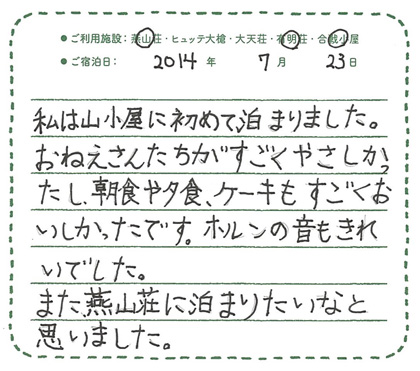 ● ご利用施設：燕山荘・ヒュッテ大槍・大天荘・有明荘・合戦小屋
● ご宿泊日： 2014 年 7 月 23 日
私は山小屋に初めて泊まりました。
おねえさんたちがすごくやさしかっ
たし、朝食や夕食、ケーキもすごくお
いしかったです。ホルンの音もきれ
いでした。
また燕山荘に泊まりたいなと
思いました。